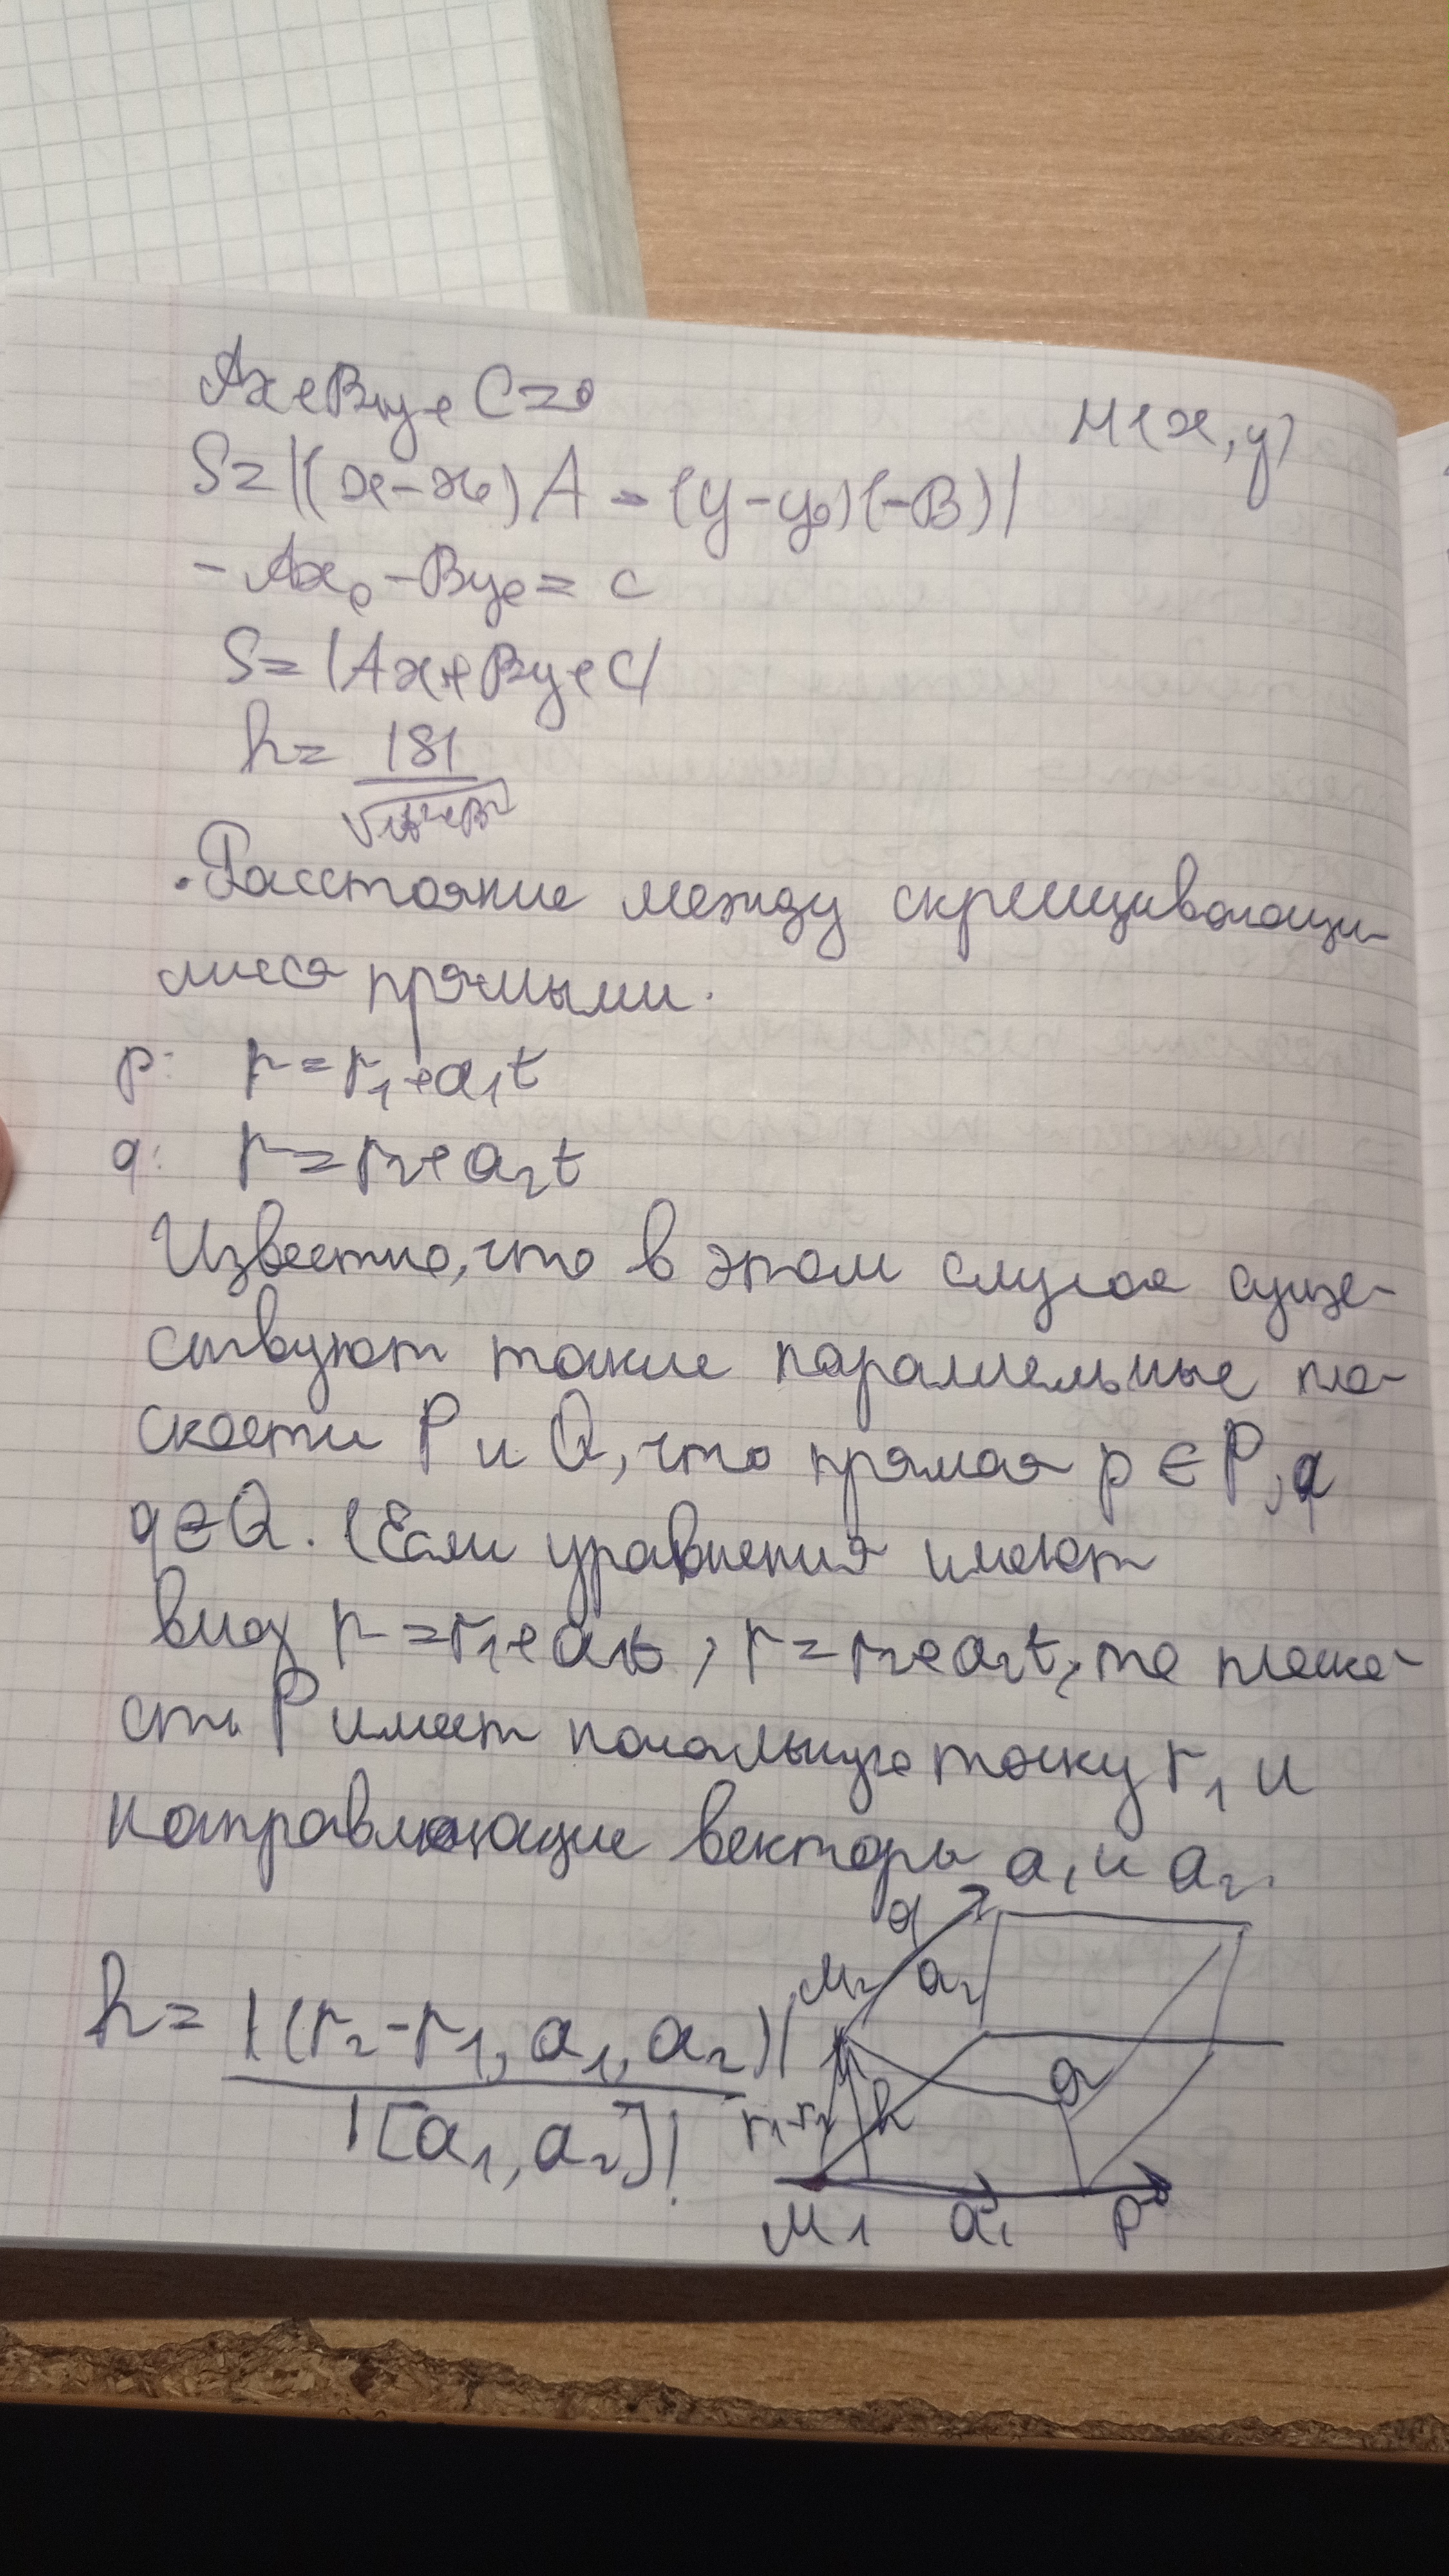 Ax+By+C=0
M(x,y)
S=|(x-x₀)A-(y-y₀)(-B)|
-Ax₀-By₀=C
S=|Ax+By+C|
h=|S|/√(A²+B²)
·Расстояние между скрещивающи-
мися прямыми.
p: r=r₁+a₁t
q: r=r₂+a₂t
Известно, что в этом случае суще-
ствуют такие параллельные пло-
скости P и Q, что прямая p∈P, а
q∈Q. (Если уравнения имеют
вид r=r₁+a₁t, r=r₂+a₂t, то плоско-
сть P имеет начальную точку r₁ и
направляющие векторы a₁ и a₂.
h=|(r₂-r₁,a₁,a₂)|/|[a₁,a₂]|
q
M₂ a₂
Q
r₁-r₂ h
M₁ a₁ P